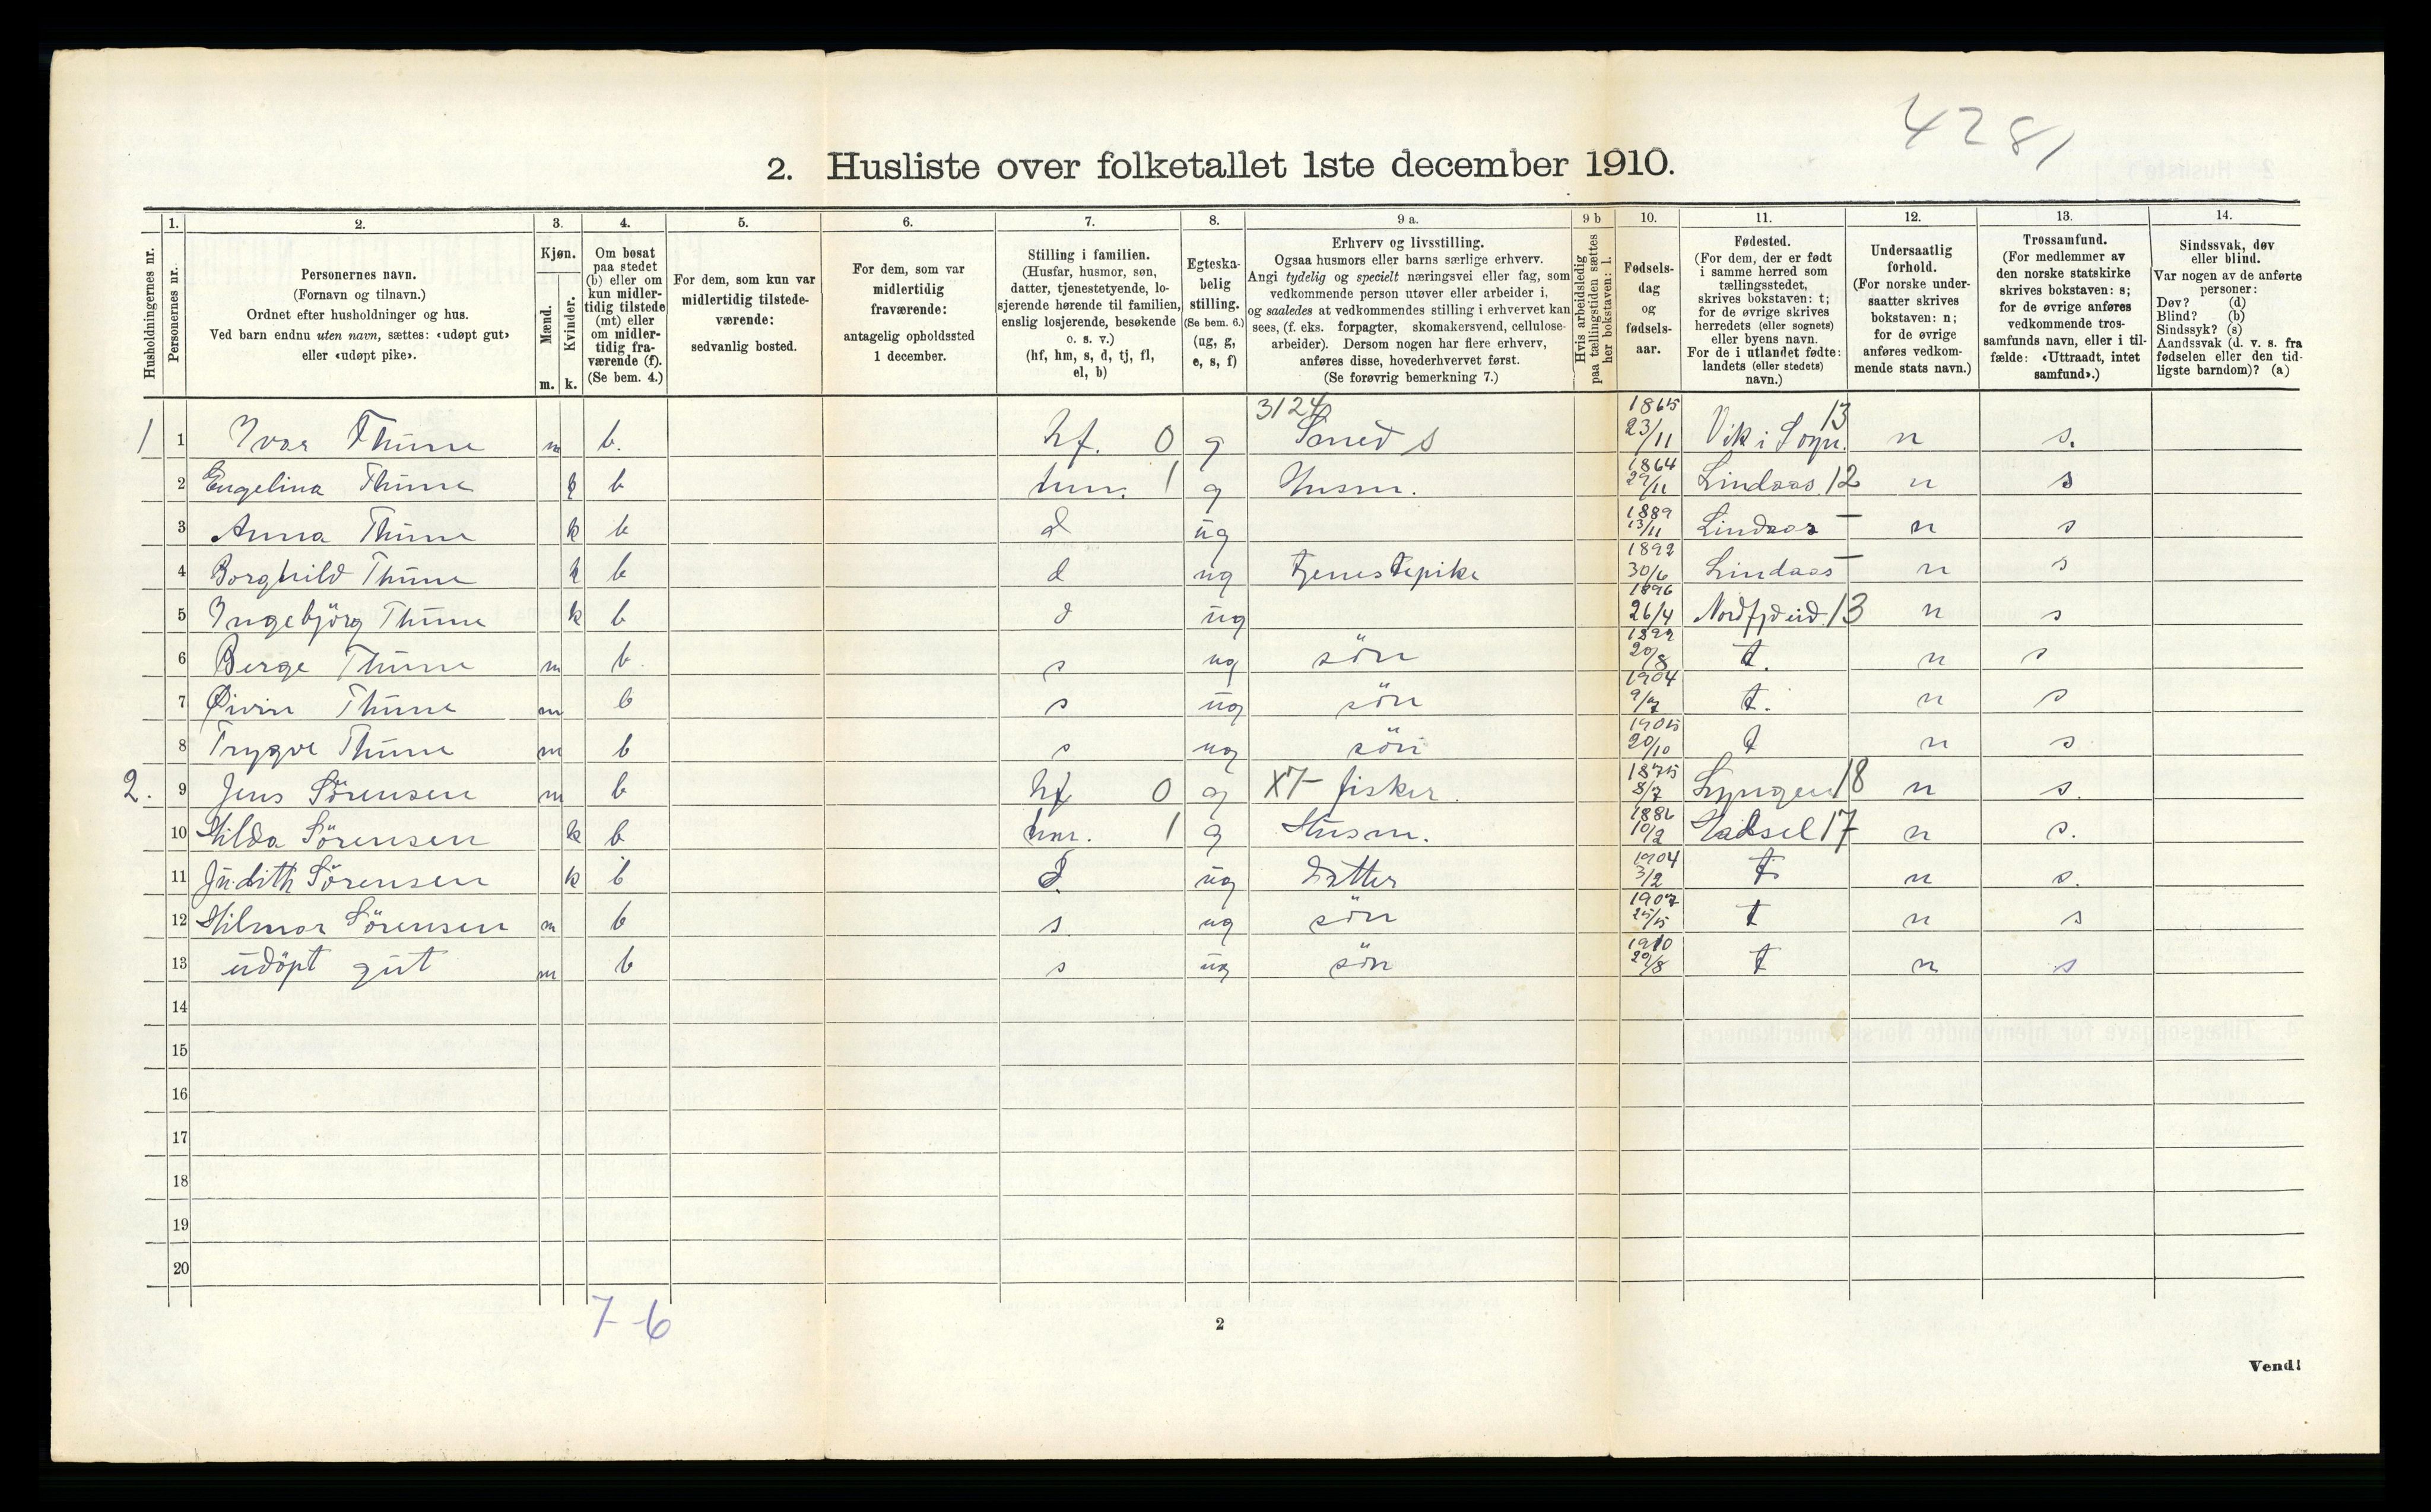 4281
2. Husliste over folketallet 1ste december 1910.
Husholdningernes nr.
1.
Personernes nr.
2.
Personernes navn.
(Fornavn og tilnavn.)
Ordnet efter husholdninger og hus.
Ved barn endnu uten navn, sættes: «udøpt gut»
eller «udøpt pike».
3.
Kjøn.
Mænd.
Kvinder.
m. k.
4.
Om bosat
paa stedet
(b) eller om
kun midler-
tidig tilstede
(mt) eller
om midler-
tidig fra-
værende (f).
(Se bem. 4.)
5.
For dem, som kun var
midlertidig tilstede-
værende:
sedvanlig bosted.
6.
For dem, som var
midlertidig
fraværende:
antagelig opholdssted
1 december.
7.
Stilling i familien.
(Husfar, husmor, søn,
datter, tjenestetyende, lo-
sjerende hørende til familien,
enslig losjerende, besøkende
o. s. v.)
(hf, hm, s, d, tj, fl,
el, b)
8.
Egteska-
belig
stilling.
(Se bem. 6.)
(ug, g,
e, s, f)
9 a.
Erhverv og livsstilling.
Ogsaa husmors eller barns særlige erhverv.
Angi tydelig og specielt næringsvei eller fag, som
vedkommende person utøver eller arbeider i,
og saaledes at vedkommendes stilling i erhvervet kan
sees, (f. eks. forpagter, skomakersvend, cellulose-
arbeider). Dersom nogen har flere erhverv,
anføres disse, hovederhvervet først.
(Se forøvrig bemerkning 7.)
9 b
Hvis arbeidsledig
paa tællingstiden sættes
her bokstaven: l.
10.
Fødsels-
dag
og
fødsels-
aar.
11.
Fødested.
(For dem, der er født
i samme herred som
tællingsstedet,
skrives bokstaven: t;
for de øvrige skrives
herredets (eller sognets)
eller byens navn.
For de i utlandet fødte:
landets (eller stedets)
navn.)
12.
Undersaatlig
forhold.
(For norske under-
saatter skrives
bokstaven: n;
for de øvrige
anføres vedkom-
mende stats navn.)
13.
Trossamfund.
(For medlemmer av
den norske statskirke
skrives bokstaven: s;
for de øvrige anføres
vedkommende tros-
samfunds navn, eller i til-
fælde: «Uttraadt, intet
samfund».)
14.
Sindssvak, døv
eller blind.
Var nogen av de anførte
personer:
Døv? (d)
Blind? (b)
Sindssyk? (s)
Aandssvak (d. v. s. fra
fødselen eller den tid-
ligste barndom)? (a)
1 1 Ivar Thune m b. hf. 0 g 3124 Smed s 1865 23/11 Vik i Sogn. 13 n s.
2 Engelina Thune k b hm. 1 g Husm. 1864 29/11 Lindaas 12 n s
3 Anna Thune k b d ug 1889 13/11 Lindaas – n s
4 Borghild Thune k b d ug Tjenestepike 1892 30/6 Lindaas – n s
5 Ingebjörg Thune k b d ug 1896 26/4 Nordfjdeid 13 n s
6 Berge Thune m b. s ug sön 1899 20/8 t. n s
7 Øivin Thune m b s ug sön 1904 9/7 t. n s
8 Trygve Thune m b s ug sön 1905 20/10 t n s
2. 9 Jens Sörensen m b hf 0 g X7- fisker. 1875 8/7 Lyngen 18 n s.
10 Hilda Sörensen k b hm. 1 g Husm. 1886 10/2 Hadsel 17 n s.
11 Judith Sörensen k b d. ug datter 1904 3/2 t n s.
12 Hilmar Sörensen m b s. ug sön 1907 25/5 t n s
13 udöpt gut m b s ug sön 1910 29/8 t n s
14
15
16
17
18
19
20
7-6
2
Vend!